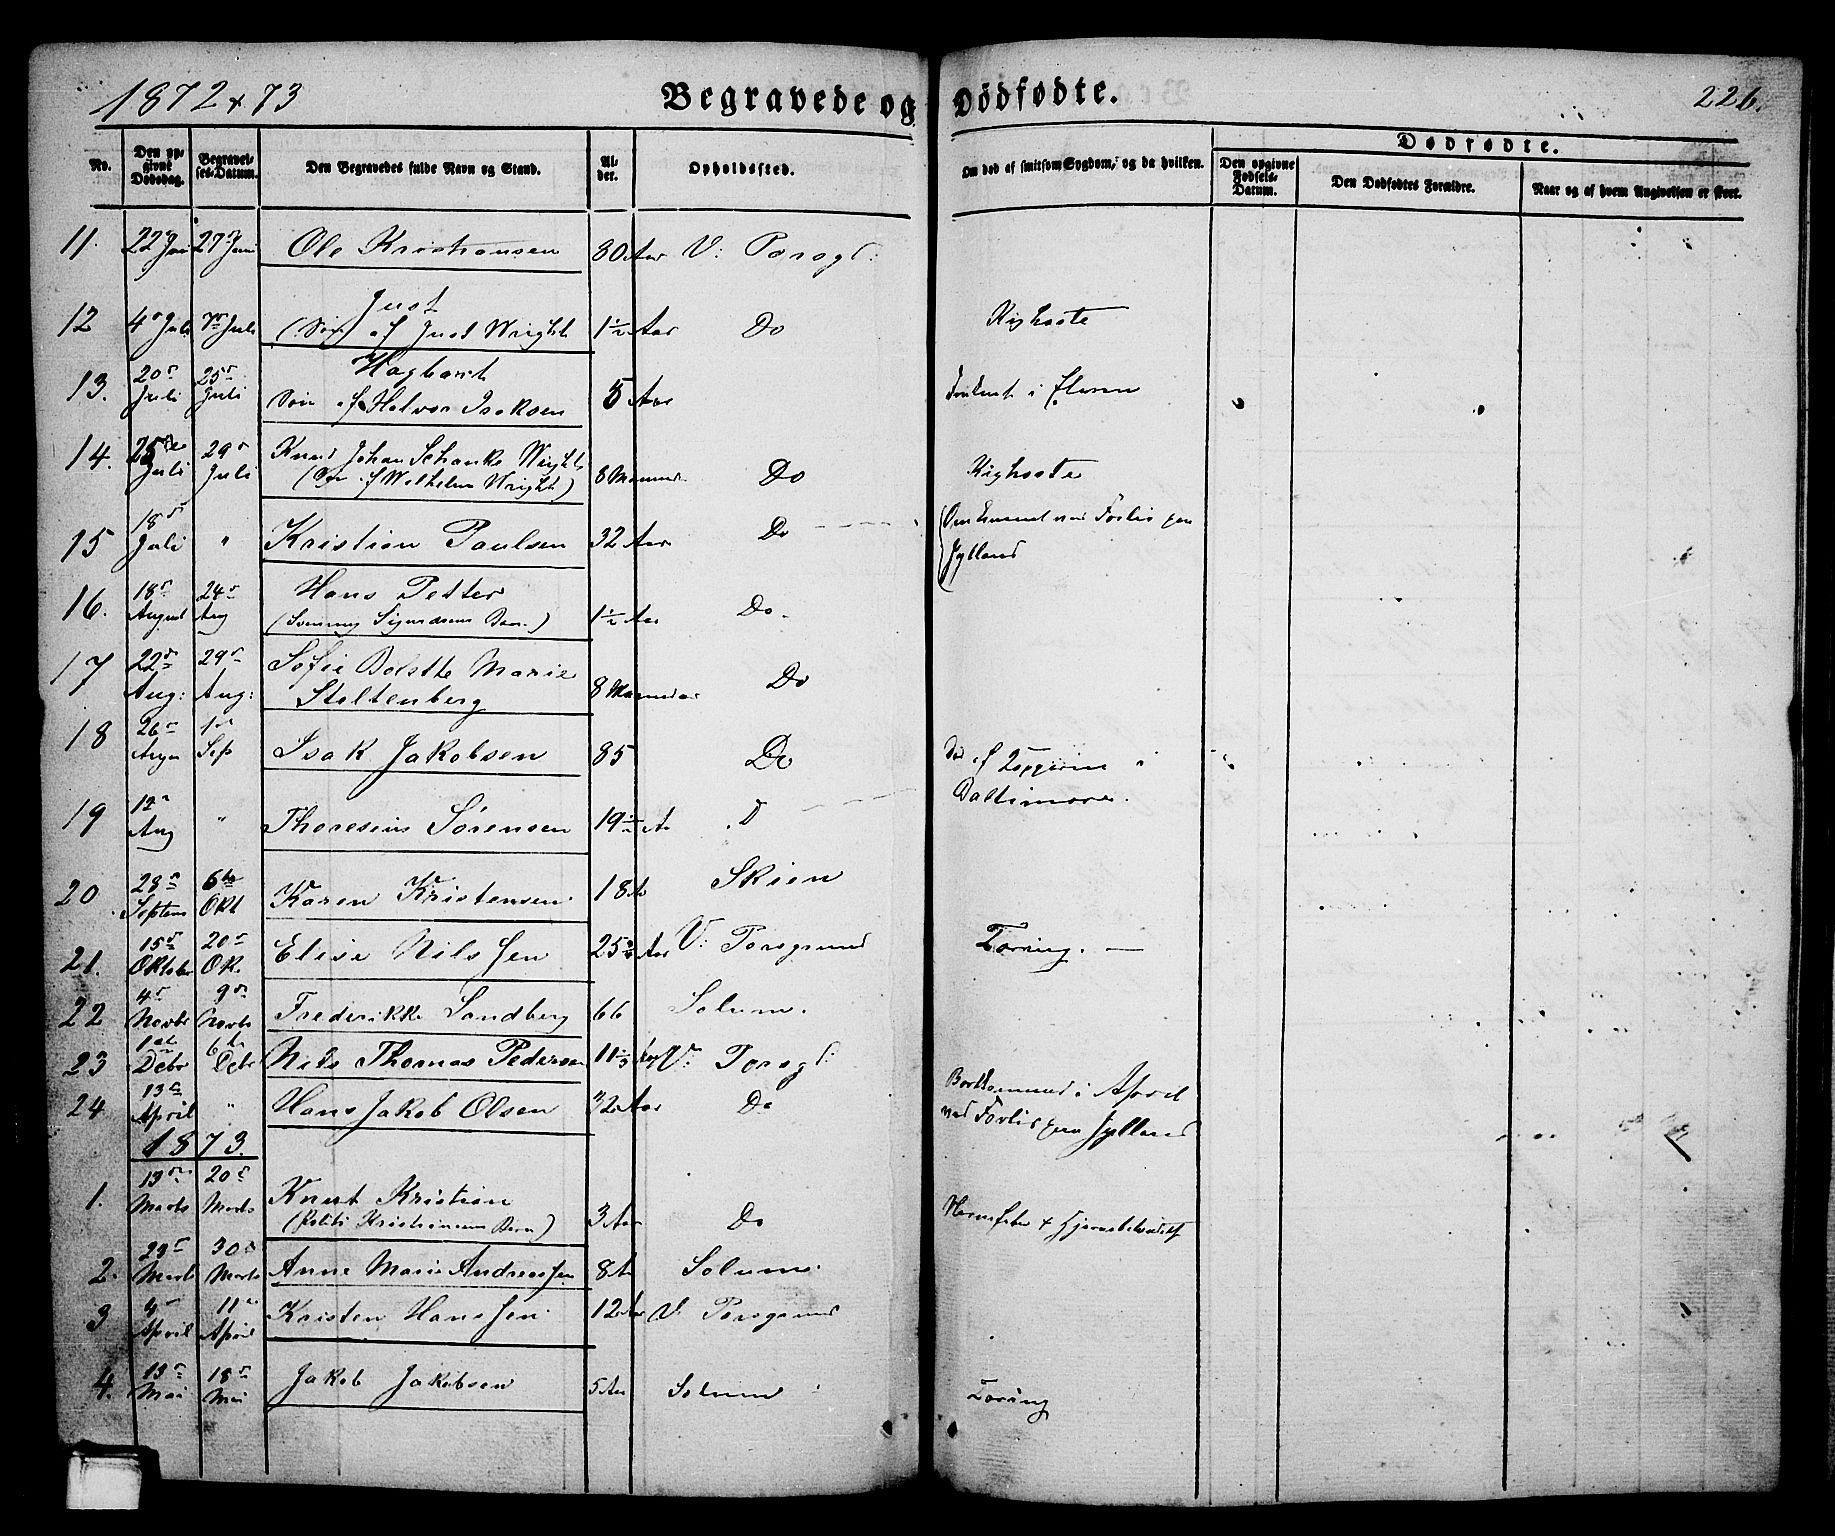 1872 + 73 Begravede og Dödfødte. 226.
No. Den opgivne Dødsdag. Begravelses-Datum. Den Begravedes fulde Navn og Stand. Alder. Opholdssted. Om død af smitsom Sygdom, og da hvilken. Dødfødte.
Den opgivne Fødsels-Datum. Den Dødfødtes Forældre. Naar og af hvem Angivelsen er skeet.
11. 22 Juni 27 Juni Ole Kristiansen 30 Aar V: Porsgd:
12 4 Juli 7 Juli Just
(Søn af Just Wright 1½ Aar Do Kighoste
13. 20 Juli 25 Juli Hagbart
Søn af Halvor Isaksen 5 Aar Druknet i Elven
14. 25 Juli 29 Juli Knud Johan Schanke Wright
(Søn af Wilhelm Wright) 8 Maaneder Do Kighoste
15 18 Juli " Kristian Paulsen 32 Aar Do (Omkommet ved Forlis paa
Jylland
16. 18 August 24 Aug Hans Petter
( Sigurdsens Barn.) 1½ Aar Do.
17 22 Aug: 29 Aug: Sofie Marie
Stoltenberg 8 Maaneder Do
18 26 Aug 1 Sep Isak Jakobsen 85 Do
19 12 Aug " Thoresius Sørensen 19½ A D Død af i
Baltimore.
20 28 Septem 6te Okt Karen Kristensen 18 A Skien
21. 15 Oktober 20 Ok. Elise Nilssen 25 Aar V: Porsgrund Tæring.
22 4 Novbr 9 Novbr Frederikke Sandberg 66 Solum.
23 1 Debr 6te Debr Nils Thomas Pedersen V: Porsgd:
24 13 April " Hans Jakob Olsen 32 Aar Do Bortkommen i April
ved Forlis paa Jylland
1873.
1. 13 Marts 20 Marts Knut Kristian
( Kristiansens Barn) 3 Aar Do
2. 23 Marts 30 Marts Anne Marie Andreassen 8 A Solum.
3 April 11 April Kristen Hanssen 12 Aar V: Porsgrund
4. 13 Mai 18 Mai Jakob Jakobsen 5 Aar Solum Tæring